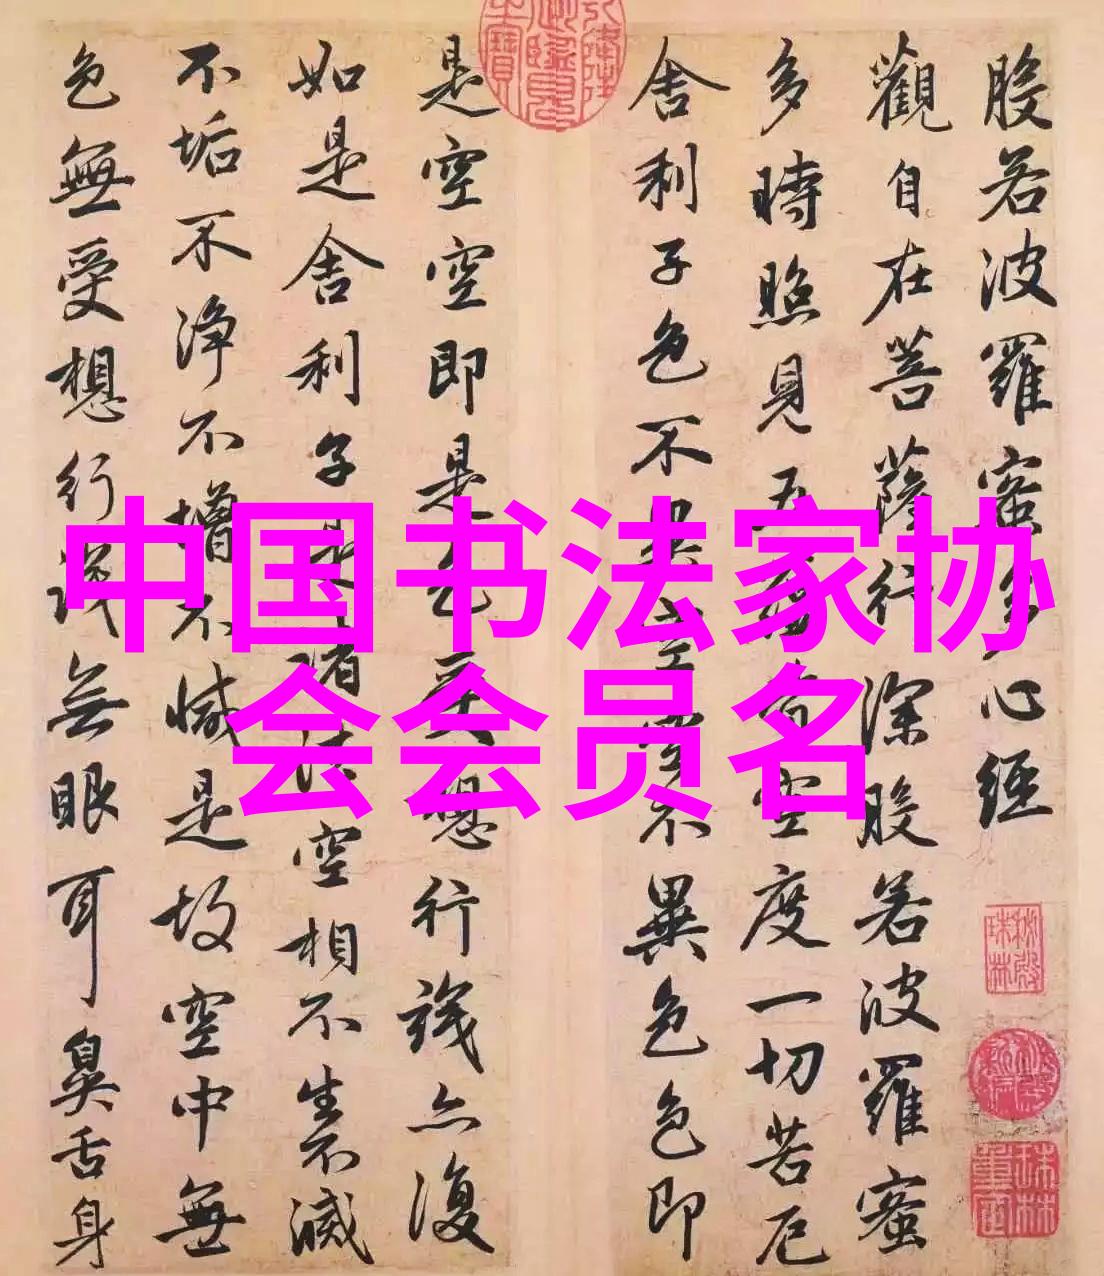 般若波羅蜜多心經
觀自在菩薩行深般若波羅蜜
多時照見五蘊皆空度一切苦厄
舍利子色不異空空不異色色即
是空空即是色受想行識亦復
如是舍利子是諸法空相不生不滅
不垢不净不增不減是故空中無
色無受想行識無眼耳鼻舌身
中国书法家协
会会员名